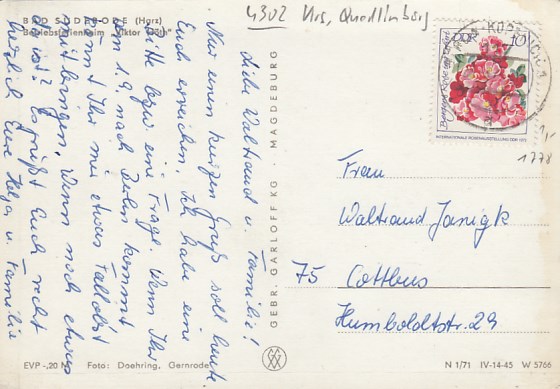 BAD SUDERODE (Harz)
Betriebsferienheim „Viktor Döth"
4302 Krs. Quedlinburg
Liebe Waltraud u. Familie!
Nur einen kurzen Gruß soll heute
Euch erreichen. Ich habe eine
Bitte bzw. eine Frage. Wenn Ihr
am 1.9. nach kommt
könnt Ihr mir etwas Fallobst
mitbringen. Wenn noch etwas
da ist? Es grüßt Euch recht
herzlich Eure Helga u. Familie
EVP -,20 M Foto: Doehring, Gernrode
GEBR. GARLOFF KG · MAGDEBURG
DDR 10
INTERNATIONALE ROSENAUSSTELLUNG DDR 1972
1778
Frau
Waltraud Janigk
75 Cottbus
Humboldtstr. 29
N 1/71 IV-14-45 W 5766